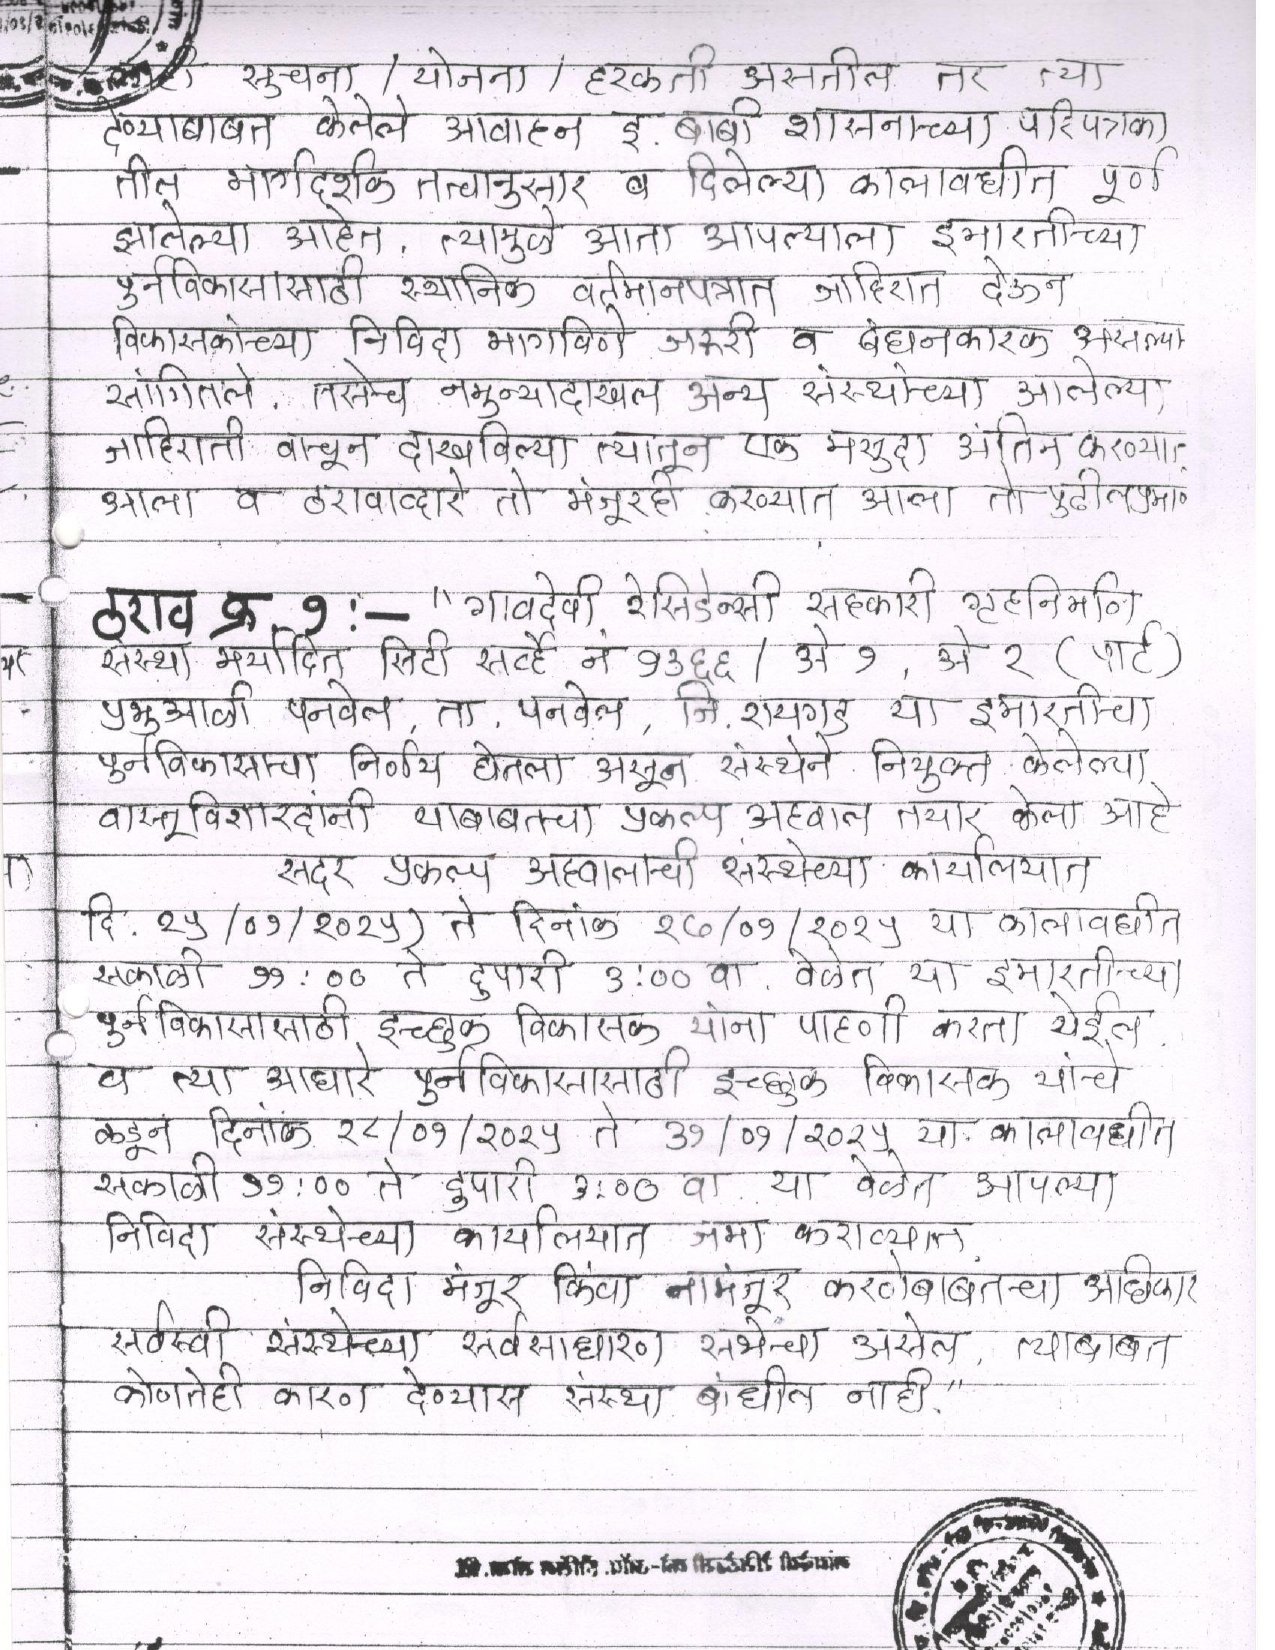 सुचना / योजना / हरकती असतील तर त्या
देण्याबाबत केलेले आवाहन इ. बाबी शासनाच्या परिपत्रका
तील मार्गदर्शक तत्वानुसार व दिलेल्या कालावधीत पूर्ण
झालेल्या आहेत. त्यामुळे आता आपल्याला इमारतीच्या
पुर्नविकासासाठी स्थानिक वर्तमानपत्रात जाहिरात देऊन
विकासकांच्या निविदा मागविणे जरुरी व बंधनकारक असल्या
सांगितले. तसेच नमुन्यादाखल अन्य संस्थांच्या आलेल्या
जाहिराती वाचून दाखविल्या त्यातून एक मसुदा अंतिम करण्यात
आला व ठरावाव्दारे तो मंजूरही करण्यात आला तो पुढीलप्रमाणे
ठराव क्र. १ :- "गावदेवी रेसिडेन्सी सहकारी गृहनिर्माण
संस्था मर्यादित सिटी सर्व्हे नं १३६६ / अे १, अे २ (पार्ट)
प्रभुआळी पनवेल, ता. पनवेल, जि. रायगड या इमारतीचा
पुर्नविकासाचा निर्णय घेतला असून संस्थेने नियुक्त केलेल्या
वास्तूविशारदांनी याबाबतचा प्रकल्प अहवाल तयार केला आहे
सदर प्रकल्प अहवालाची संस्थेच्या कार्यालयात
दि. २५/०१/२०२५) ते दिनांक २७/०१/२०२५ या कालावधीत
सकाळी ११:०० ते दुपारी ३:०० वा. वेळेत या इमारतीच्या
पुर्नविकासासाठी इच्छुक विकासक यांना पाहणी करता येईल.
व त्या आधारे पुर्नविकासासाठी इच्छुक विकासक यांचे
कडून दिनांक २८/०१/२०२५ ते ३१/०१/२०२५ या कालावधीत
सकाळी ११:०० ते दुपारी ३:०० वा. या वेळेत आपल्या
निविदा संस्थेच्या कार्यालयात जमा कराव्यात.
निविदा मंजूर किंवा नामंजूर करणेबाबतचा अधिकार
सर्वस्वी संस्थेच्या सर्वसाधारण सभेचा असेल. त्याबाबत
कोणतेही कारण देण्यास संस्था बांधील नाही."